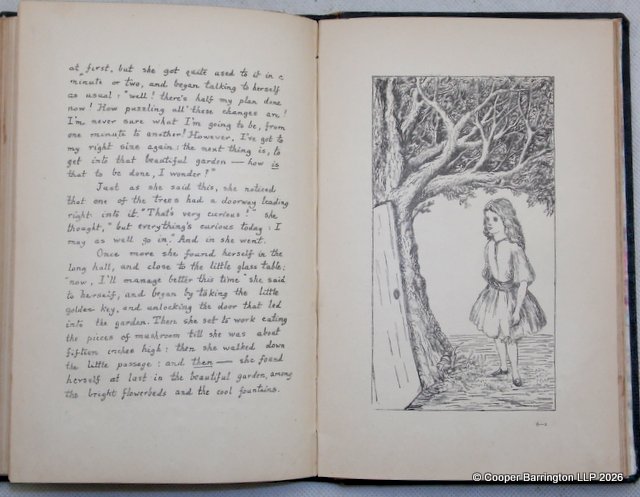 at first, but she got quite used to it in a
minute or two, and began talking to herself
as usual: "well! there's half my plan done
now! How puzzling all these changes are!
I'm never sure what I'm going to be, from
one minute to another! However, I've got to
my right size again: the next thing is, to
get into that beautiful garden — how is
that to be done, I wonder?"
Just as she said this, she noticed
that one of the trees had a doorway leading
right into it. "That's very curious!" she
thought, "but everything's curious today: I
may as well go in." And in she went.
Once more she found herself in the
long hall, and close to the little glass table:
"now, I'll manage better this time" she said
to herself, and began by taking the little
golden key, and unlocking the door that led
into the garden. Then she set to work eating
the pieces of mushroom till she was about
fifteen inches high: then she walked down
the little passage: and then — she found
herself at last in the beautiful garden, among
the bright flowerbeds and the cool fountains.
© Cooper Barrington LLP 2026